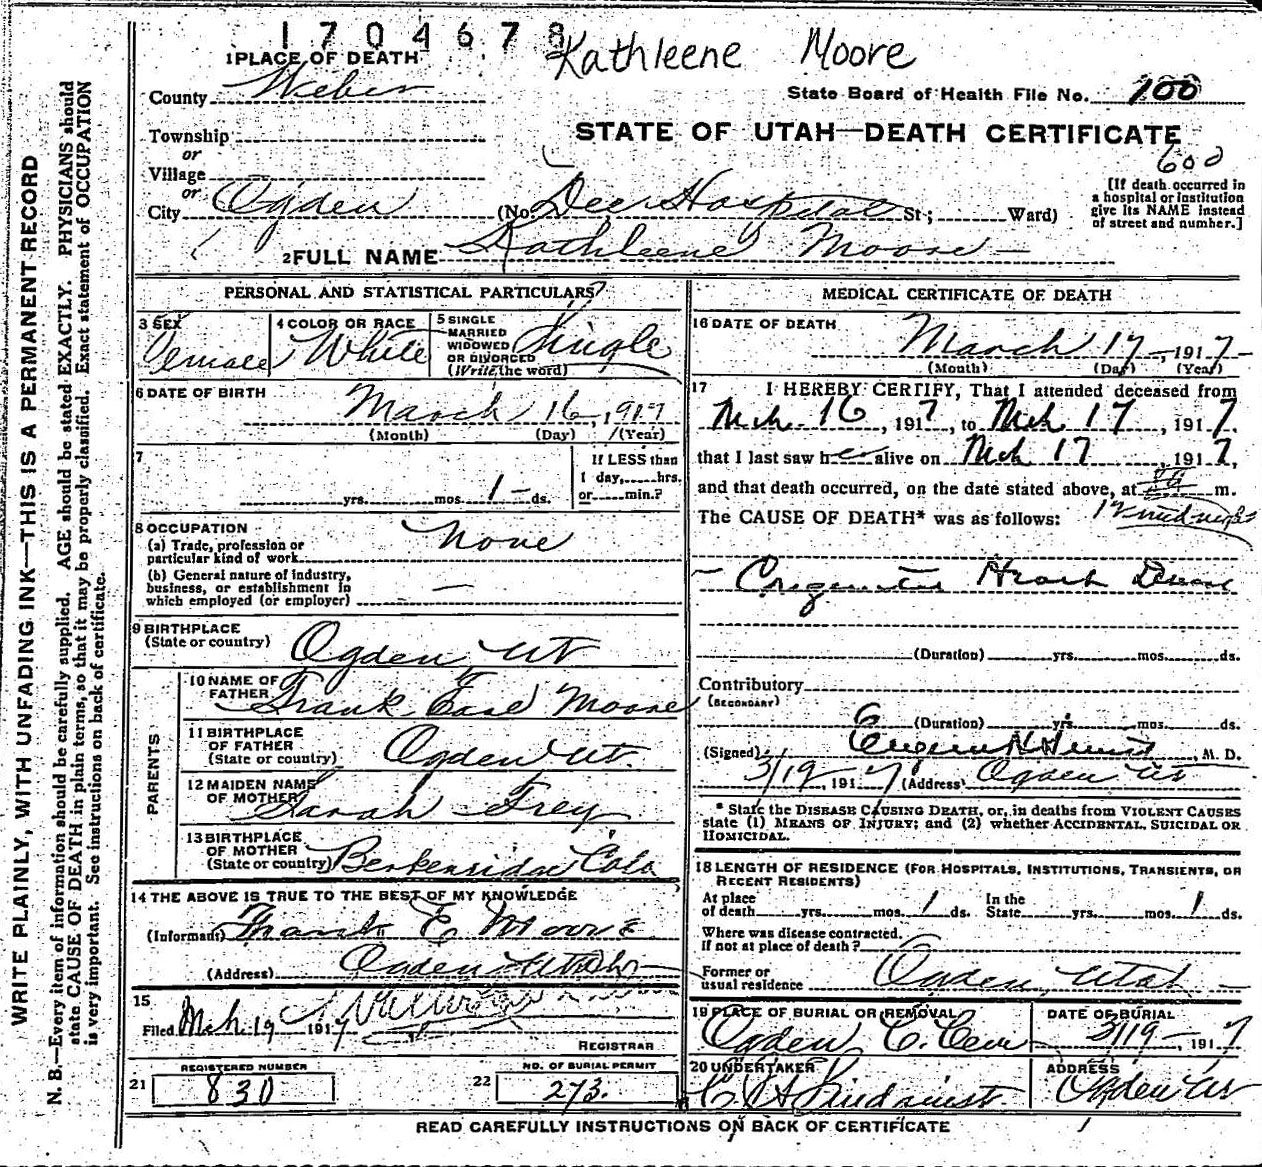 1704678
Kathleene Moore
1 PLACE OF DEATH
County Weber
State Board of Health File No. 100
Township
STATE OF UTAH—DEATH CERTIFICATE
or
600
Village
or
City Ogden (No. Dee Hospital St.; Ward)
[If death occurred in
a hospital or institution
give its NAME instead
of street and number.]
2 FULL NAME Kathleene Moore
PERSONAL AND STATISTICAL PARTICULARS
3 SEX
Female
4 COLOR OR RACE
White
5 SINGLE
MARRIED
WIDOWED
OR DIVORCED
(Write the word)
Single
6 DATE OF BIRTH
March 16, 1917
(Month) (Day) (Year)
7
yrs. mos. 1 ds.
If LESS than
1 day, hrs.
or min.?
8 OCCUPATION
(a) Trade, profession or
particular kind of work None
(b) General nature of industry,
business, or establishment in
which employed (or employer) —
9 BIRTHPLACE
(State or country) Ogden, Ut
PARENTS
10 NAME OF
FATHER Frank Earl Moore
11 BIRTHPLACE
OF FATHER
(State or country) Ogden Ut.
12 MAIDEN NAME
OF MOTHER Sarah Frey
13 BIRTHPLACE
OF MOTHER
(State or country) Colo
14 THE ABOVE IS TRUE TO THE BEST OF MY KNOWLEDGE
(Informant) Frank E Moore
(Address) Ogden Utah
15
Filed Mch 19 1917
REGISTRAR
REGISTERED NUMBER
21 830
NO. OF BURIAL PERMIT
22 273.
MEDICAL CERTIFICATE OF DEATH
16 DATE OF DEATH
March 17, 1917
(Month) (Day) (Year)
17 I HEREBY CERTIFY, That I attended deceased from
Mch 16, 1917, to Mch 17, 1917.
that I last saw her alive on Mch 17 1917,
and that death occurred, on the date stated above, at m.
The CAUSE OF DEATH* was as follows: 12 midnight
Heart Disease
(Duration) yrs. mos. ds.
Contributory
(SECONDARY)
(Duration) yrs. mos. ds.
(Signed) Eugene H , M. D.
3/19, 1917 (Address) Ogden Ut
* State the DISEASE CAUSING DEATH, or, in deaths from VIOLENT CAUSES
state (1) MEANS OF INJURY; and (2) whether ACCIDENTAL, SUICIDAL OR
HOMICIDAL.
18 LENGTH OF RESIDENCE (FOR HOSPITALS, INSTITUTIONS, TRANSIENTS, OR
RECENT RESIDENTS)
At place
of death yrs. mos. 1 ds.
In the
State yrs. mos. 1 ds.
Where was disease contracted,
If not at place of death?
Former or
usual residence Ogden, Utah
19 PLACE OF BURIAL OR REMOVAL
Ogden C. Cem
DATE OF BURIAL
3/19, 1917
20 UNDERTAKER
ADDRESS
Ogden Ut
READ CAREFULLY INSTRUCTIONS ON BACK OF CERTIFICATE
WRITE PLAINLY, WITH UNFADING INK—THIS IS A PERMANENT RECORD
N. B.—Every item of information should be carefully supplied. AGE should be stated EXACTLY. PHYSICIANS should
state CAUSE OF DEATH in plain terms, so that it may be properly classified. Exact statement of OCCUPATION
is very important. See instructions on back of certificate.